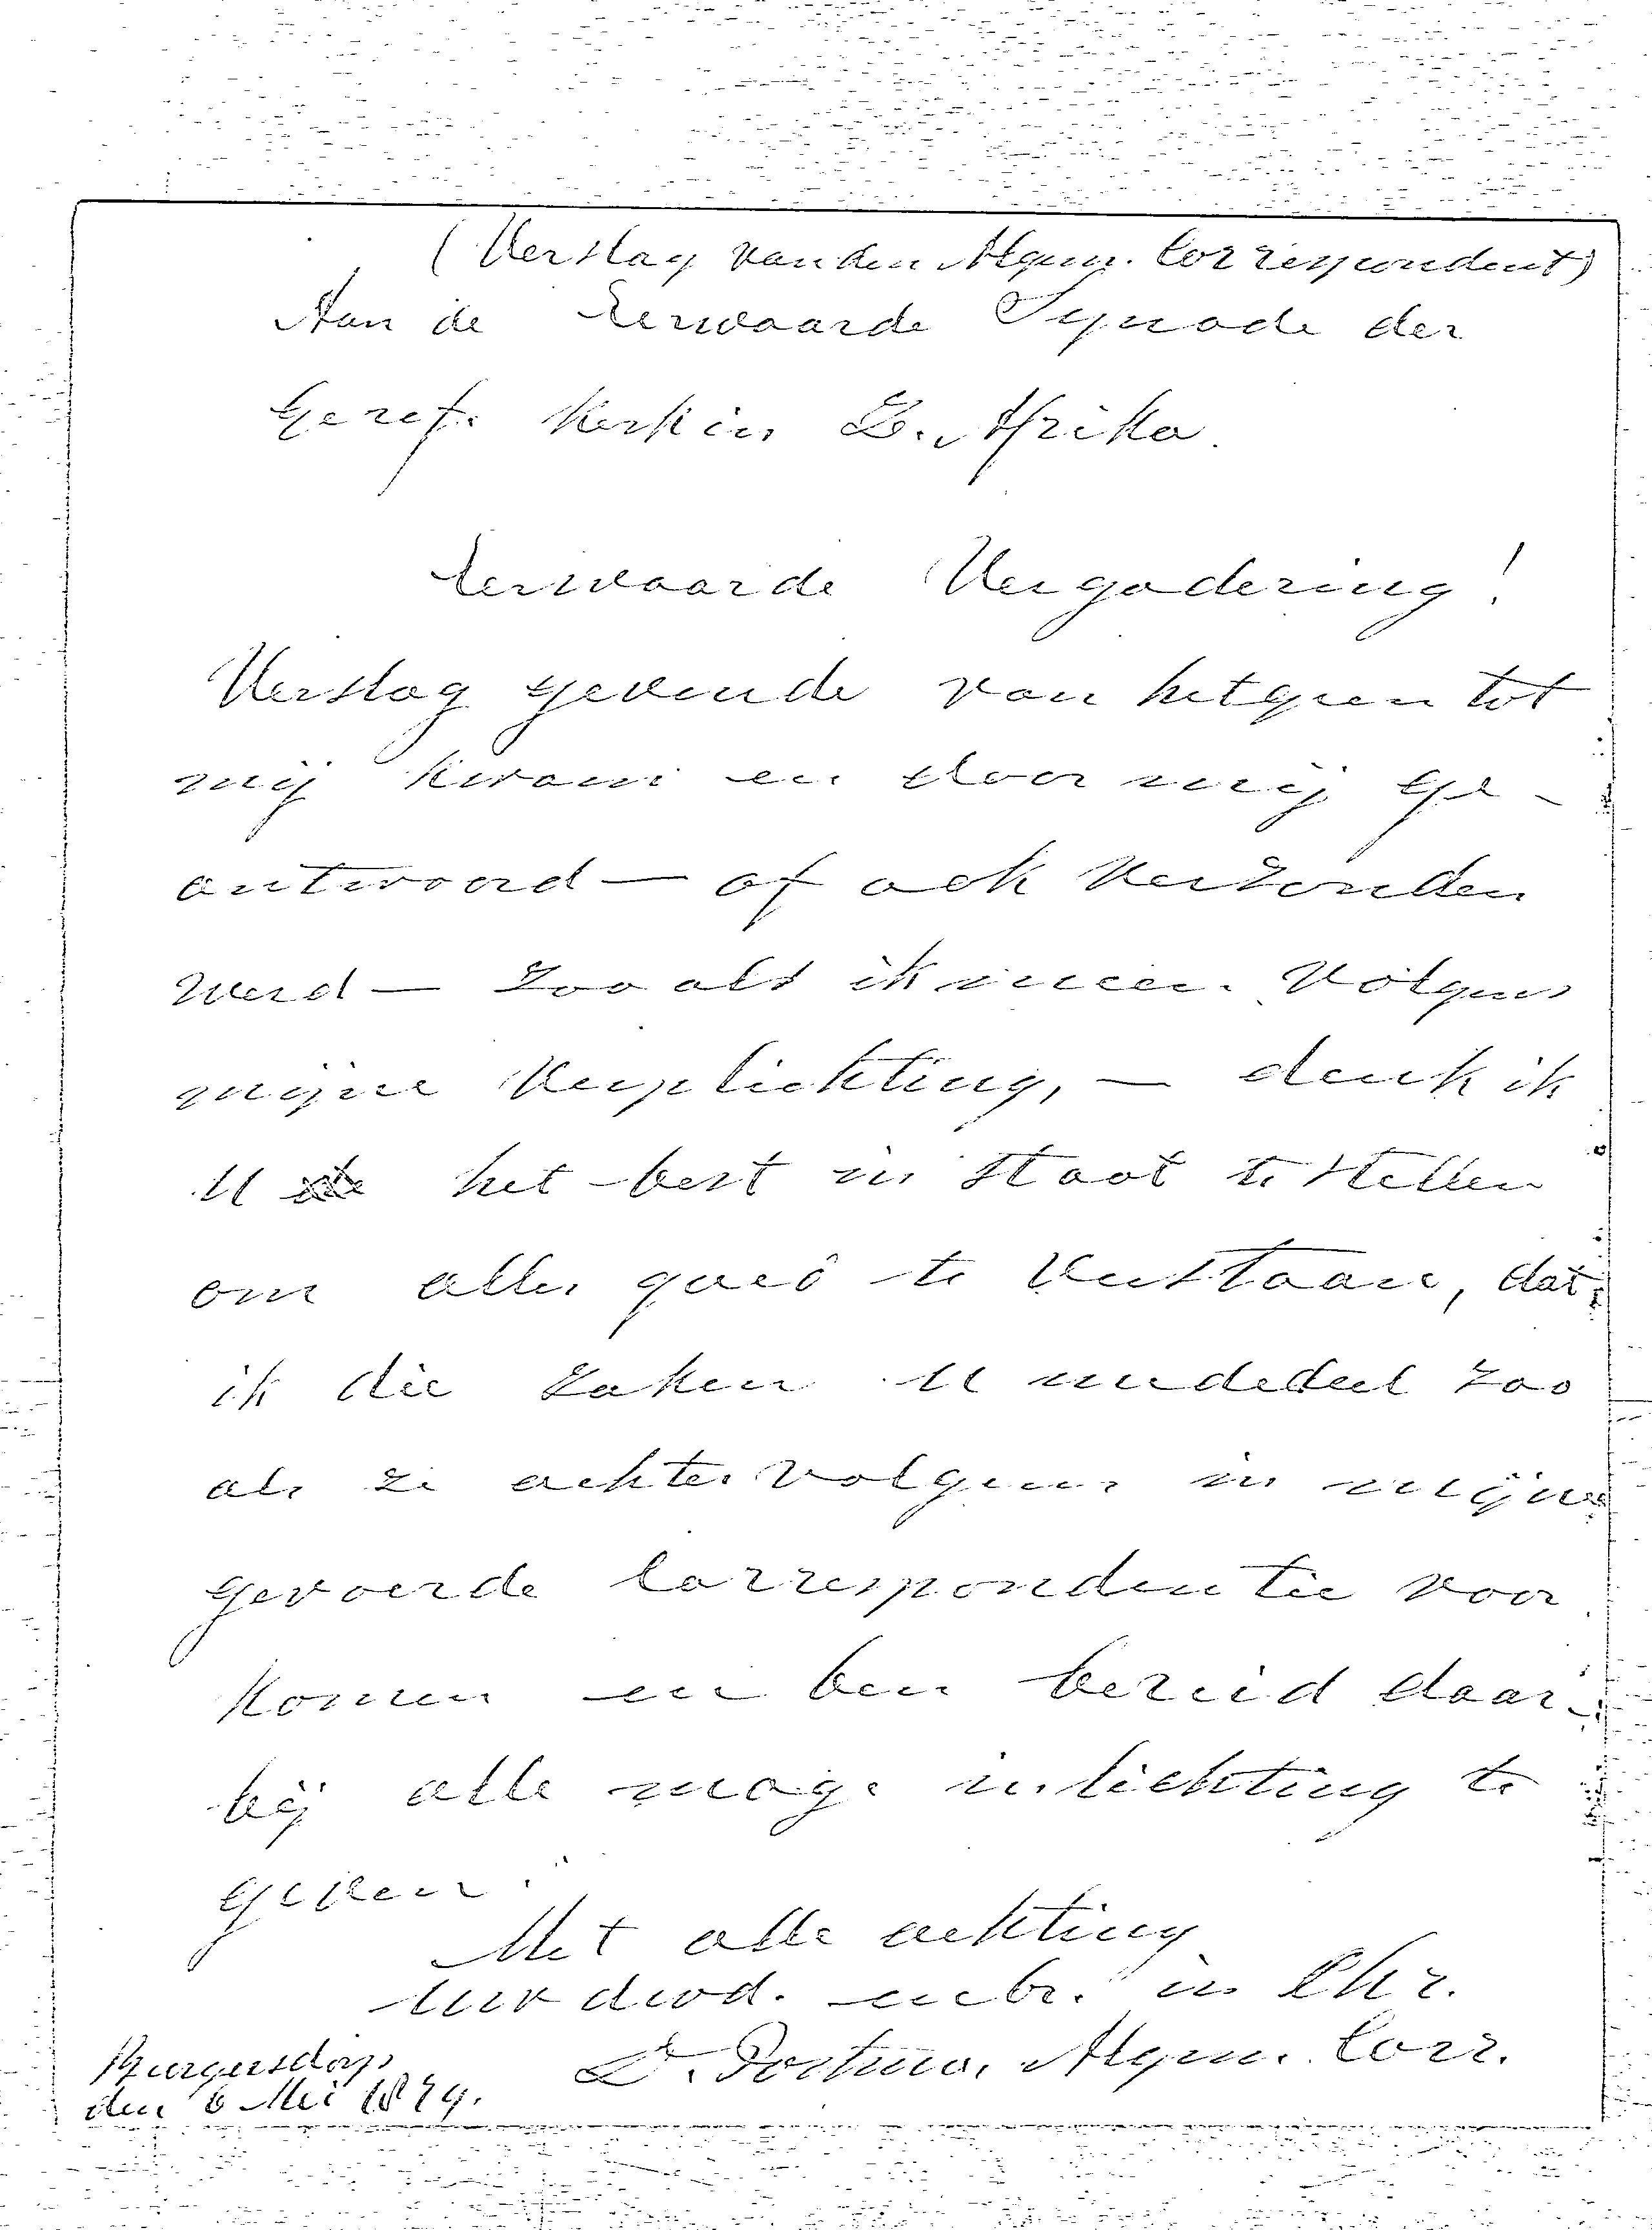 (Verslag van den Algem. Correspondent)
Aan de Eerwaarde Synode der
Geref. Kerk in Z. Afrika.
Eerwaarde Vergadering!
Verslag gevende van hetgeen tot
mij kwam en door mij ge-
antwoord — of ook verzonden
werd — zoo als ik meen. Volgens
mijne verplichting, — denk ik
U het best in staat te stellen
om alles goed te verstaan, dat
ik die zaken U mededeel zoo
als ze achtervolgens in mijne
gevoerde Correspondentie voor
komen en ben bereid daar-
bij alle mog. inlichting te
geven.
Met alle achting
Uw dwd. mbr. in Chr.
D. Postma, Algem. Corr.
Burgersdorp
den 6 Mei 1879.